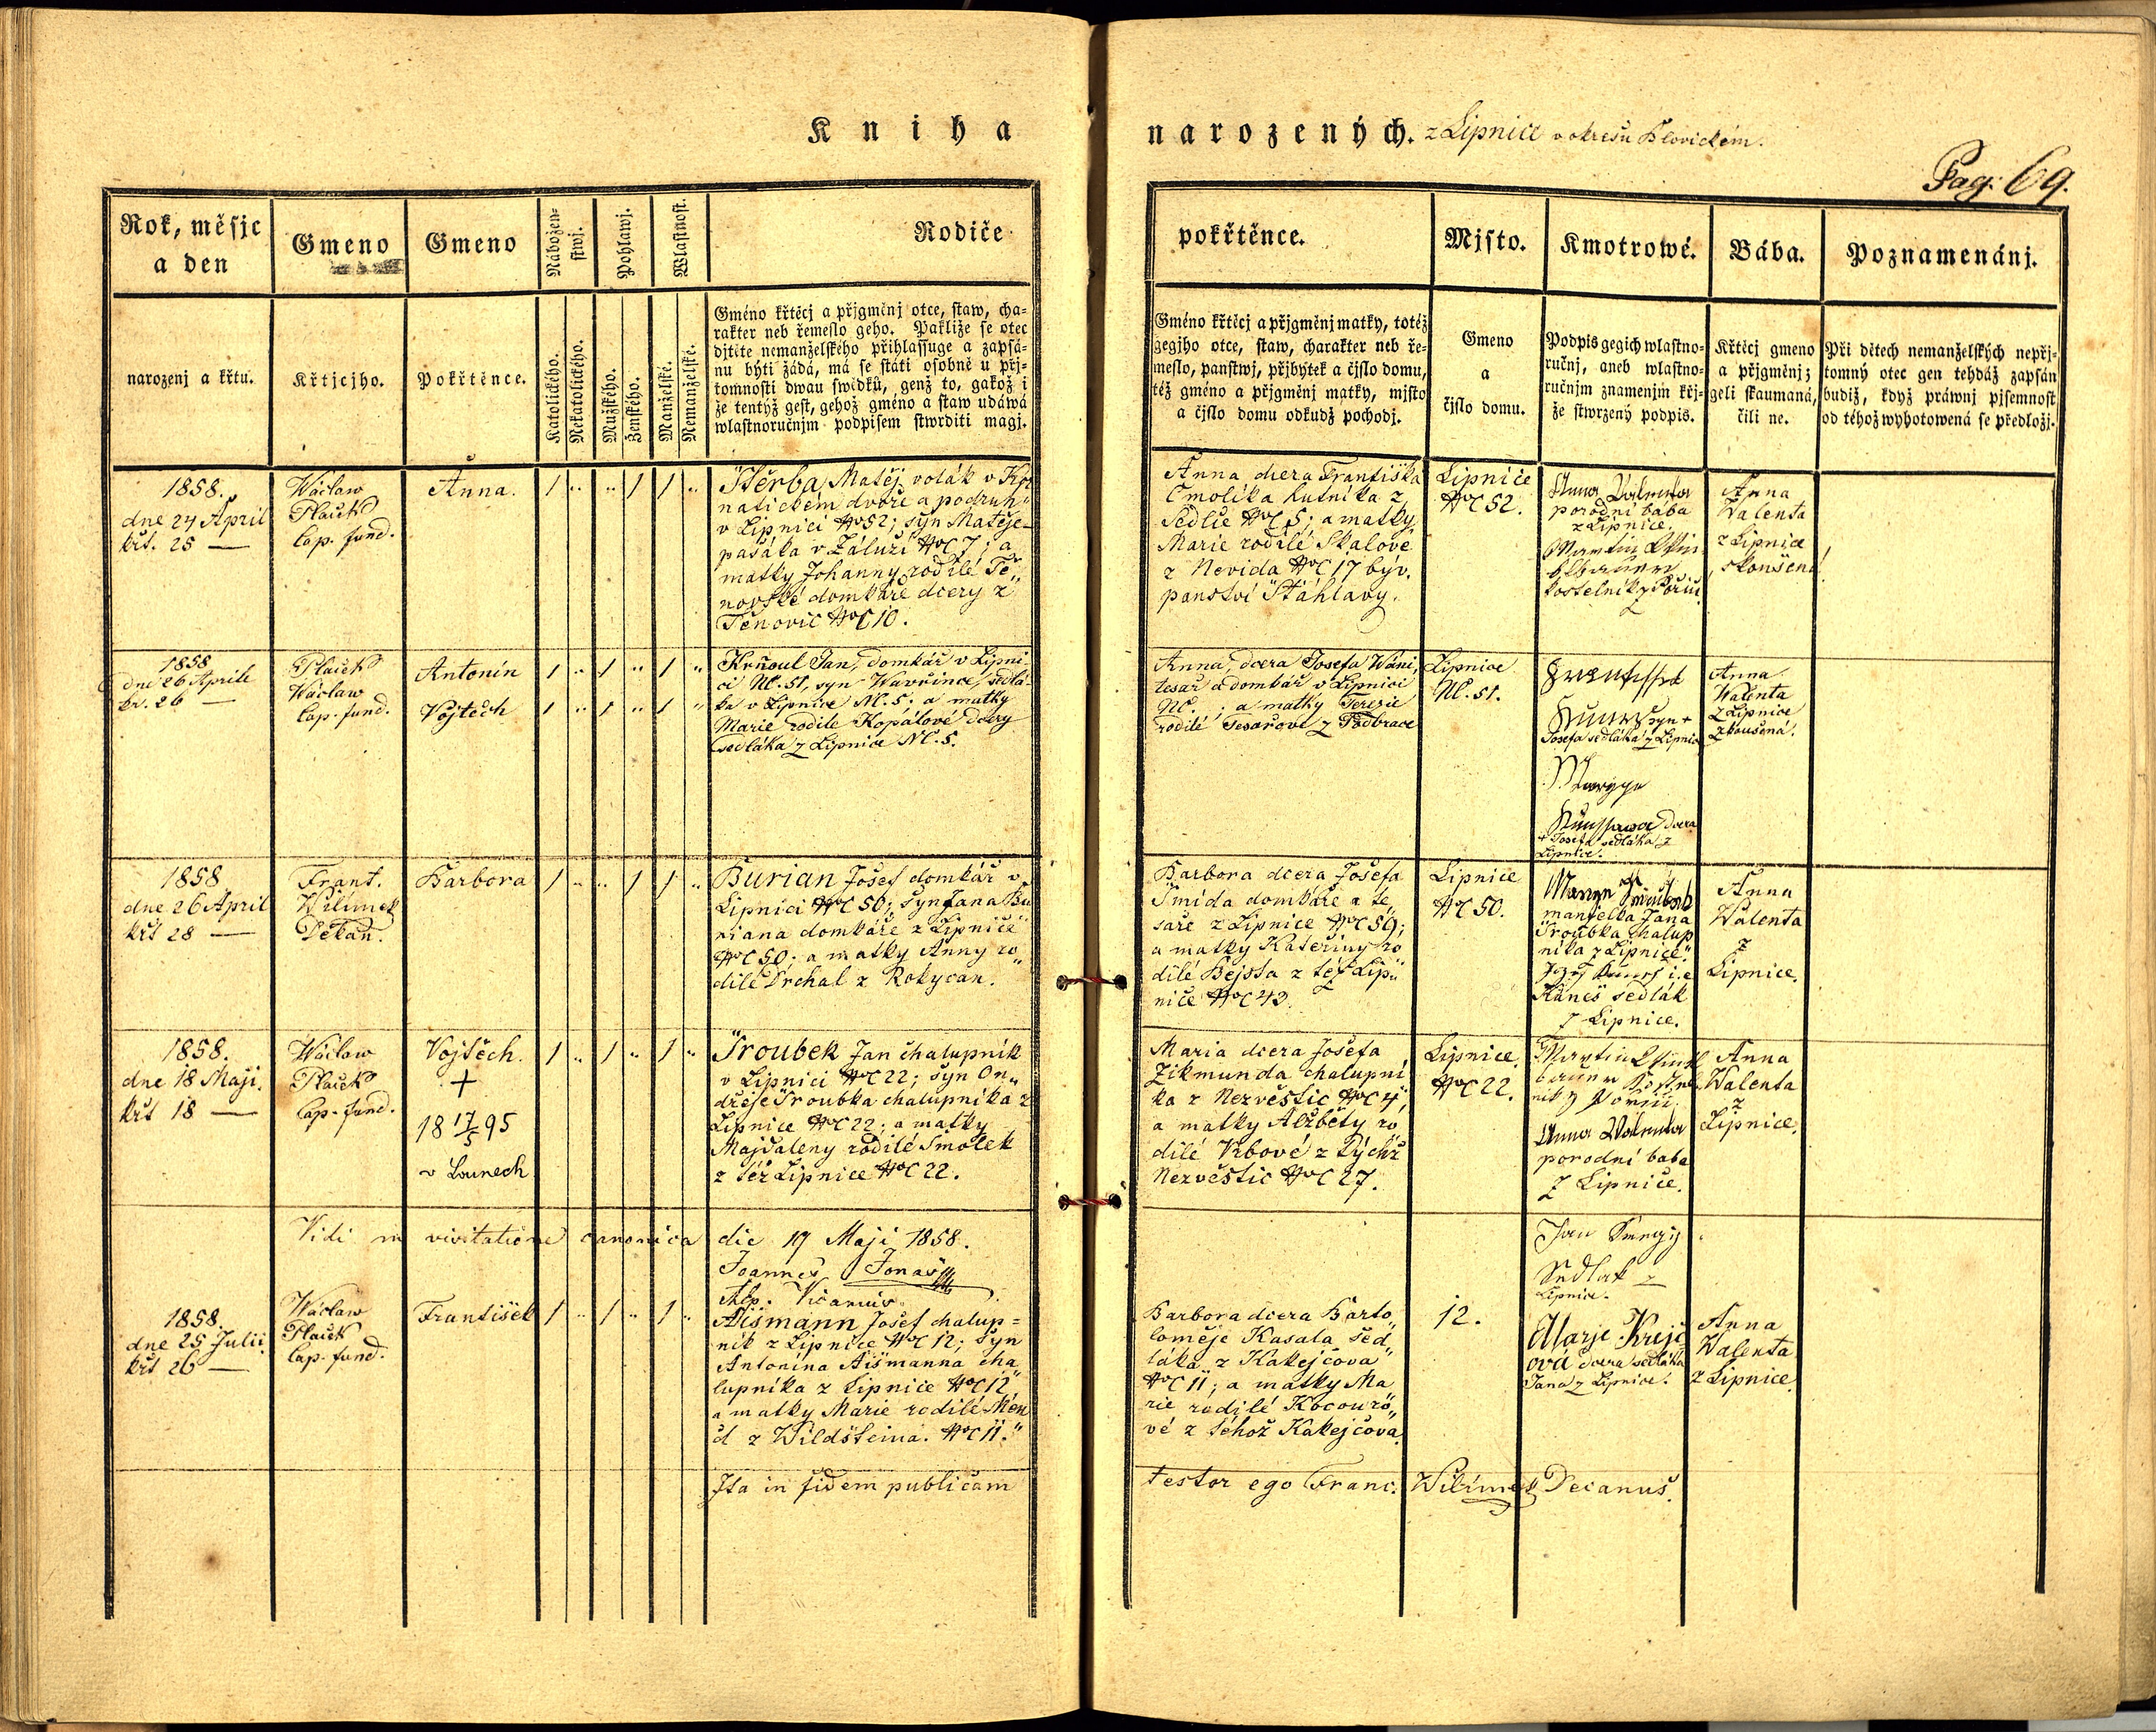 Kniha narozených. z Lipnice v okresu Blovickém.
Pag: 69.
Rok, měsjc
a den
Gmeno
Gmeno
Nábožen-
stwj.
Pohlawj.
Wlastnost.
Rodiče
pokřtěnce.
Mjsto.
Kmotrowé.
Bába.
Poznamenánj.
narozenj a křtu.
Křtjcjho.
Pokřtěnce.
Katolického.
Nekatolického.
Mužského.
Ženského.
Manželské.
Nemanželské.
Gméno křtěcj a přjgměnj otce, staw, cha-
rakter neb řemeslo geho. Pakliže se otec
djtěte nemanželského přihlassuge a zapsá-
nu býti žádá, má se státi osobně u přj-
tomnosti dwau swědků, genž to, gakož i
že tentýž gest, gehož gméno a staw udáwá
wlastnoručnjm podpisem stwrditi magj.
Gméno křtěcj a přjgměnj matky, totéž
gegjho otce, staw, charakter neb ře-
meslo, panstwj, přjbytek a čjslo domu,
též gméno a přjgměnj matky, mjsto
a čjslo domu odkudž pochodj.
Gmeno
a
čjslo domu.
Podpis gegich wlastno-
ručnj, aneb wlastno-
ručnjm znamenjm křj-
že stwrzený podpis.
Křtěcj gmeno
a přjgměnj;
geli skaumaná,
čili ne.
Při dětech nemanželských nepřj-
tomný otec gen tehdáž zapsán
budiž, když práwnj pjsemnost
od téhož wyhotowená se předložj.
1858.
dne 24 April
křt. 25 —
Wáclaw
Plaček
Cap. fund.
Anna.
1 .. .. 1 1 ..
Štěrba Matěj volák v
natickém dvoře a podruh
v Lipnici NC 52; syn Matěje
pasáka v Záluží NC 7; a
matky Johanny rodilé Te„
novské domkáře dcery z
Těnovic NC 10.
Anna dcera Františka
Čmolíka hutníka z
Sedlce NC 5; a matky
Marie rodilé Skalové
z Nevida NC 17 býv.
panství Štáhlavy.
Lipnice
NC 52.
Anna Walenta
porodní bába
z Lipnice.
Martin
kostelník z Poříčí
Anna
Walenta
z Lipnice
skoušená!
1858
dne 26 Aprile
kř. 26 —
Plaček
Wáclaw
Cap. fund.
Antonín
Vojtěch
1 .. 1 .. 1 ..
1 .. 1 .. 1 ..
Krňoul Jan, domkář v Lipni-
ci NC. 51, syn Wavřince, sedlá-
ka v Lipnice NC. 5. a matky
Marie rodile Kopátové dcery
sedláka z Lipnice NC. 5.
Anna, dcera Josefa Wáni,
tesař a domkář v Lipnici
NC. ; a matky Terezie
rodilé Tesařové z
Lipnice
NC. 51.
syn +
Josefa sedláka z Lipnice
dcera
+ Josefa sedláka z
Lipnice.
Anna
Walenta
z Lipnice
zkoušená!
1858
dne 26 April
křt 28 —
Frant.
Wilímek
Děkan.
Barbora
1 .. .. 1 1 ..
Burian Josef domkář v
Lipnici NC 50; syn Jana Bu
riana domkáře z Lipnice
NC 50; a matky Anny ro„
dilé Drchal z Rokycan.
Barbora dcera Josefa
Šmída domkáře a te„
saře z Lipnice NC 59;
a matky Kateřiny ro
dilé Bejsta z též Lip„
nice NC 43.
Lipnice
NC 50.
manželka Jana
Šroubka chalup
níka z Lipnice.
i.e
Kuneš sedlák
z Lipnice.
Anna
Walenta
z
Lipnice.
1858.
dne 18 Maji.
křt 18 —
Wáclaw
Plaček
Cap. fund.
Vojtěch.
+
18 17/5 95
v Lounech
1 .. 1 .. 1 ..
Šroubek Jan chalupník
v Lipnici NC 22; syn On„
dřeje Šroubka chalupníka z
Lipnice NC 22; a matky
Majdaleny rodilé Smolek
z též Lipnice NC 22.
Maria dcera Josefa
Zikmunda chalupní
ka z Nezvěstic NC 4;
a matky Alžběty ro
dilé Vrbové z Týchž
Nezvěstic NC 27.
Lipnice.
NC 22.
Martin
Anna Walenta
porodní baba
z Lipnice.
Anna
Walenta
z
Lipnice.
Vidi in visitatione canonica die 19 Maji 1858.
Joannes Jonas
Aep. Vicarius
1858.
dne 25 Julii.
křt 26 —
Wáclaw
Plaček
Cap. fund.
František
1 .. 1 .. 1 ..
Aišmann Josef chalup=
ník z Lipnice NC 12; syn
Antonína Aišmanna cha
lupníka z Lipnice NC 12
a matky Marie rodilé Men
d z Wildšteina. NC 11.
Barbora dcera Barto„
loměje Kasala sed„
láka z Kakejčova
NC 11; a matky Ma
rie rodilé Kocouro„
vé z téhož Kakejčova.
12.
Jan
Sedlak z
Lipnice.
Marje Krejč
ová dcera sedláka
Jana z Lipnice.
Anna
Walenta
z Lipnice.
Ita in fidem publicam testor ego Franc. Wilímek Decanus.